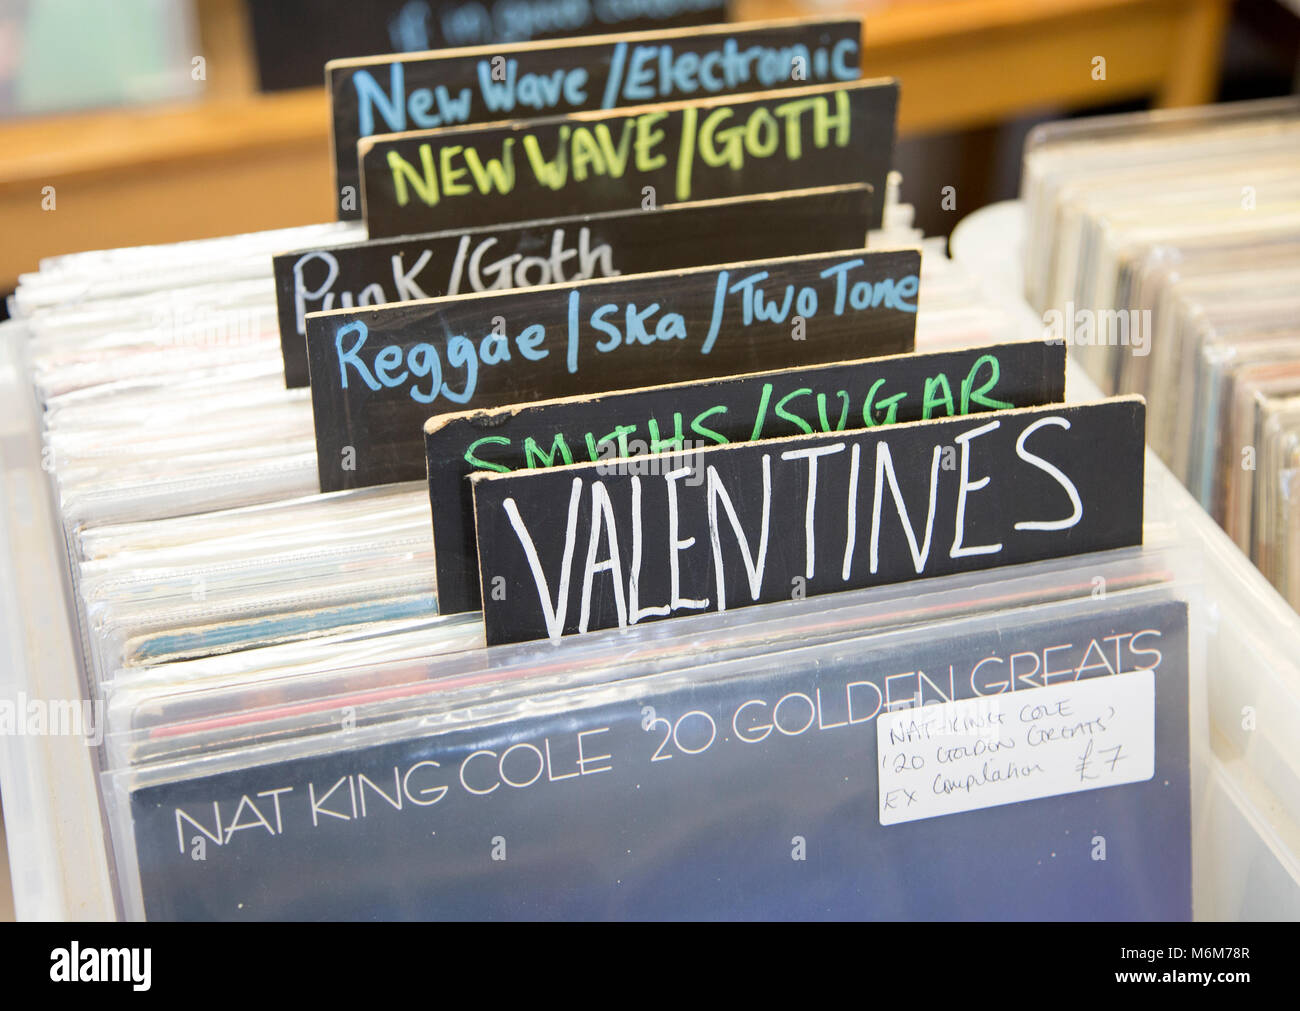 if in good
New Wave/Electronic
NEW WAVE/GOTH
Punk/Goth
Reggae/Ska/Two Tone
SMITHS/SUGAR
VALENTINES
NAT KING COLE 20 GOLDEN GREATS
NAT-KING COLE
'20 GOLDEN GREATS'
EX Compilation £7
alamy
Image ID: M6M78R
www.alamy.com